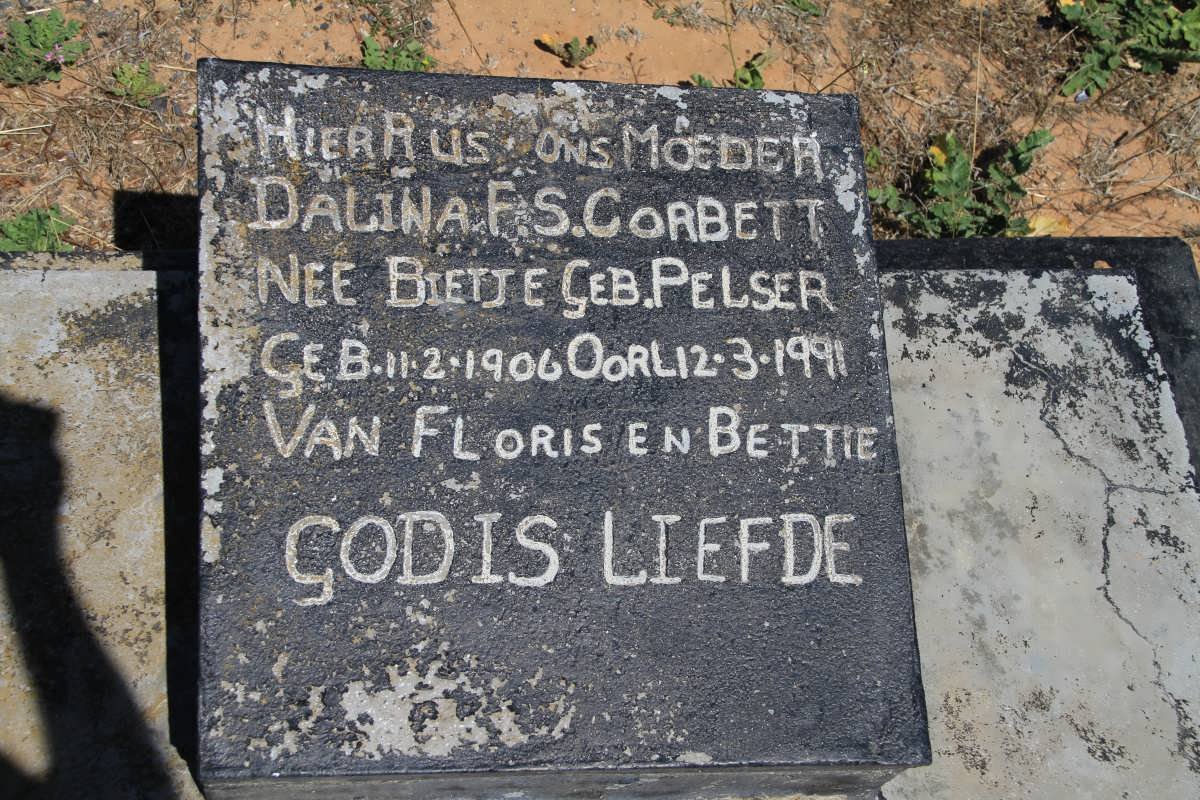 HIER RUS ONS MOEDER
DALINA F.S. CORBETT
NEE BIETJE GEB. PELSER
GEB. 11.2.1906 OORL 12.3.1991
VAN FLORIS EN BETTIE
GOD IS LIEFDE